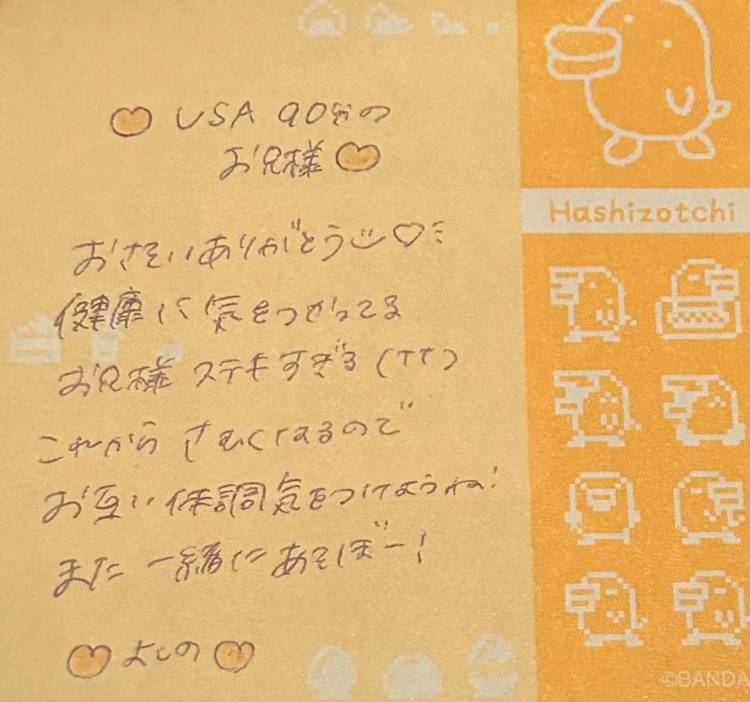 USA 90分の
お兄様
おさそいありがとう
健康に気をつかってる
お兄様 ステキすぎる(TT)
これから さむくなるので
お互い体調気をつけようね!
また一緒にあそぼー!
よしの
Hashizotchi
©BANDA